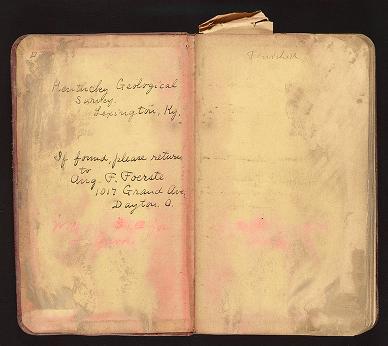 Kentucky Geological
Survey.
Lexington, Ky.
If found, please return
to
Aug. F. Foerste
1017 Grand Ave,
Dayton. O.
Finished